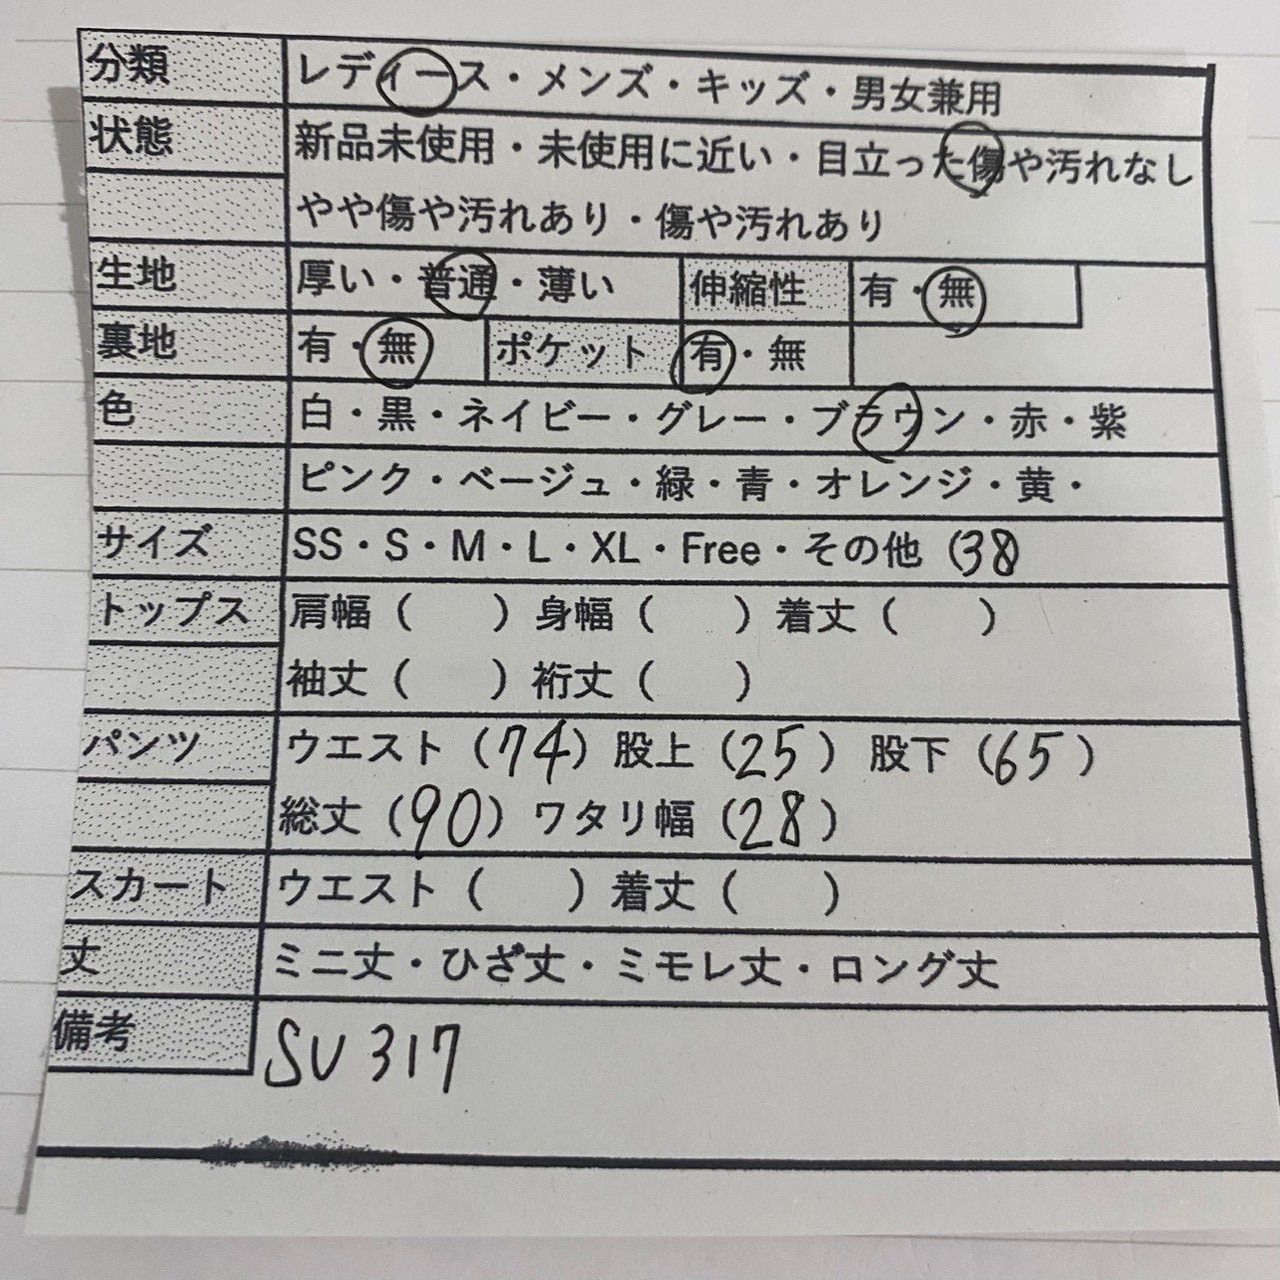 分類 レディース・メンズ・キッズ・男女兼用
状態 新品未使用・未使用に近い・目立った傷や汚れなし
やや傷や汚れあり・傷や汚れあり
生地 厚い・普通・薄い 伸縮性 有・無
裏地 有・無 ポケット 有・無
色 白・黒・ネイビー・グレー・ブラウン・赤・紫
ピンク・ベージュ・緑・青・オレンジ・黄・
サイズ SS・S・M・L・XL・Free・その他（38）
トップス 肩幅（　　）身幅（　　）着丈（　　）
袖丈（　　）裄丈（　　）
パンツ ウエスト（74）股上（25）股下（65）
総丈（90）ワタリ幅（28）
スカート ウエスト（　　）着丈（　　）
丈 ミニ丈・ひざ丈・ミモレ丈・ロング丈
備考 SU 317